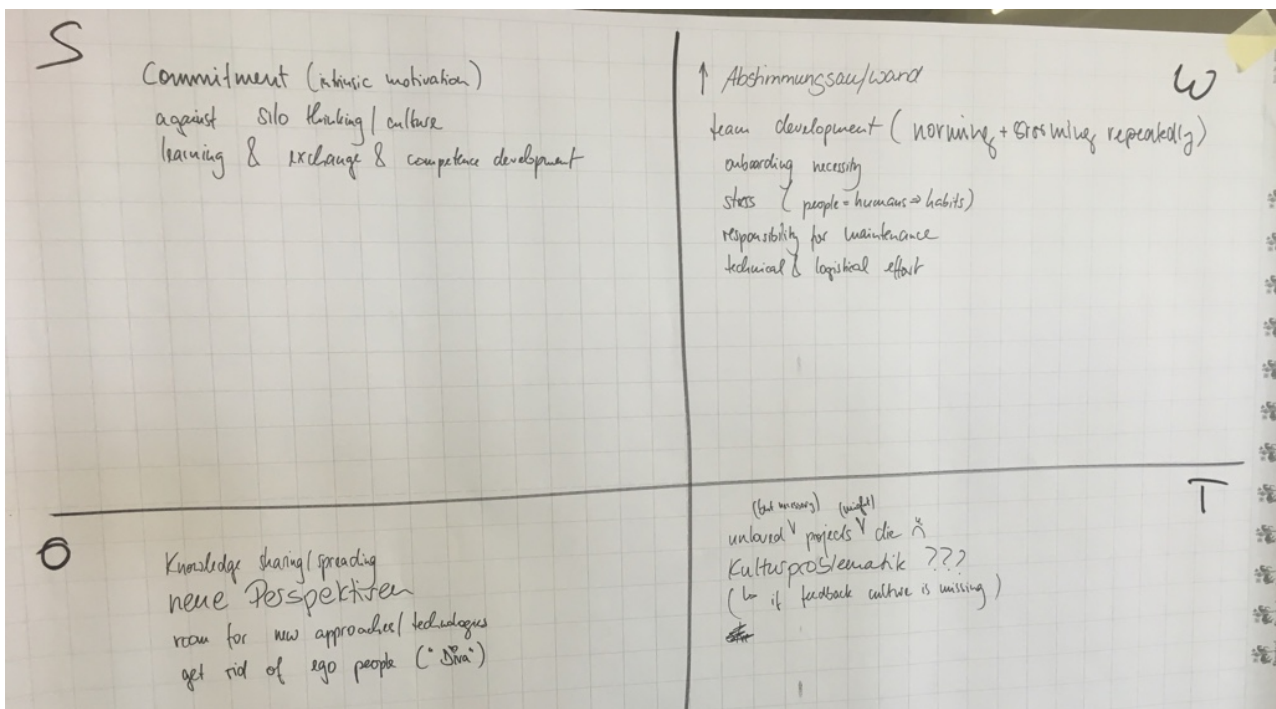 S
Commitment (intrinsic motivation)
against silo thinking/culture
learning & exchange & competence development
W
↑ Abstimmungsaufwand
team development (norming + storming repeatedly)
onboarding necessity
stress (people = humans ⇒ habits)
responsibility for maintenance
technical & logistical effort
O
Knowledge sharing/spreading
neue Perspektiven
room for new approaches/technologies
get rid of ego people ("Diva")
T
(but necessary) (might)
unloved projects die
Kulturproblematik ???
(↳ if feedback culture is missing)